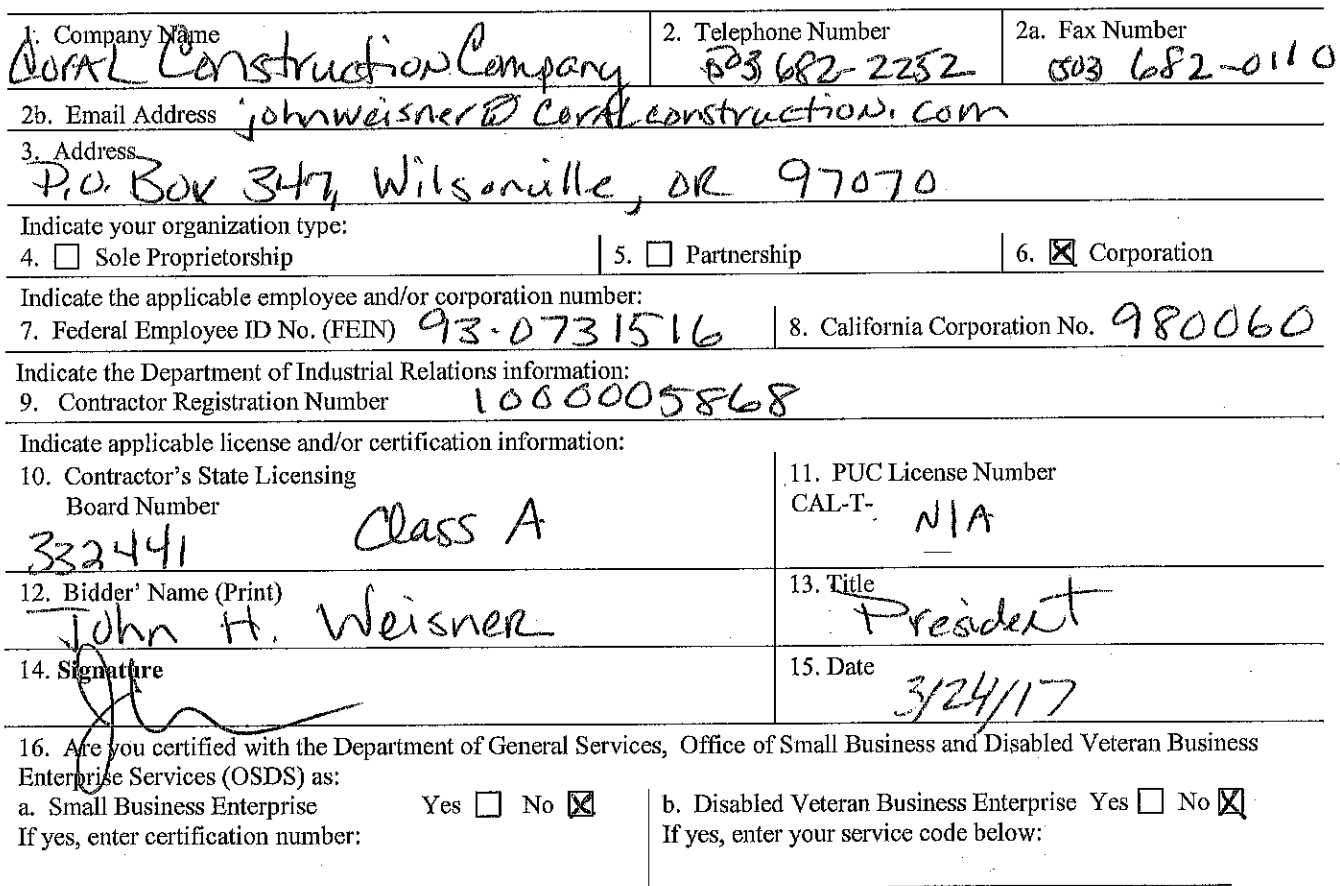 1. Company Name 2. Telephone Number 2a. Fax Number
Coral Construction Company 503 682-2252 (503) 682-0110
2b. Email Address johnweisner@coralconstruction.com
3. Address
P.O. Box 347, Wilsonville, OR 97070
Indicate your organization type:
4. ☐ Sole Proprietorship 5. ☐ Partnership 6. ☒ Corporation
Indicate the applicable employee and/or corporation number:
7. Federal Employee ID No. (FEIN) 93-0731516 8. California Corporation No. 980060
Indicate the Department of Industrial Relations information:
9. Contractor Registration Number 1000005868
Indicate applicable license and/or certification information:
10. Contractor's State Licensing 11. PUC License Number
Board Number CAL-T- N/A
332441 Class A
12. Bidder' Name (Print) 13. Title
John H. Weisner President
14. Signature 15. Date
3/24/17
16. Are you certified with the Department of General Services, Office of Small Business and Disabled Veteran Business
Enterprise Services (OSDS) as:
a. Small Business Enterprise Yes ☐ No ☒ b. Disabled Veteran Business Enterprise Yes ☐ No ☒
If yes, enter certification number: If yes, enter your service code below: